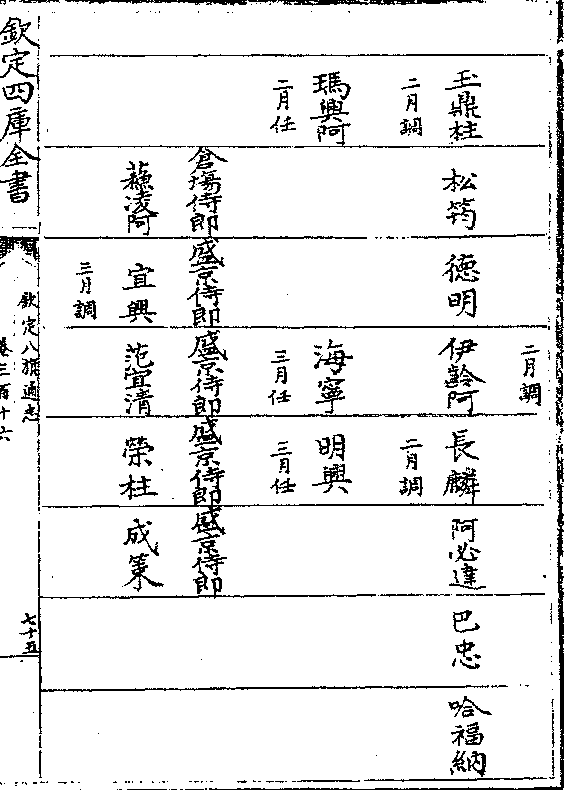 玉鼎柱
二月調
瑪興阿
二月任
松筠
倉場侍郎
蘇凌阿
德明
盛京侍郎
宜興
三月調
二月調
伊齡阿
海寧
三月任
盛京侍郎
范宜清
長麟
二月調
明興
三月任
盛京侍郎
榮柱
阿必達
盛京侍郎
成策
巴忠
哈福納
欽定四庫全書
欽定八旗通志
卷三百十六
七十五